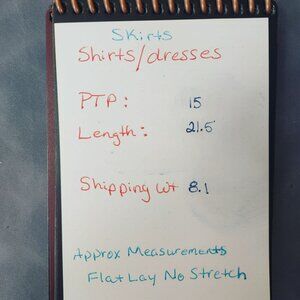 Skirts
Shirts/dresses
PTP: 15
Length: 21.5
Shipping wt 8.1
Approx Measurements
Flat Lay No Stretch